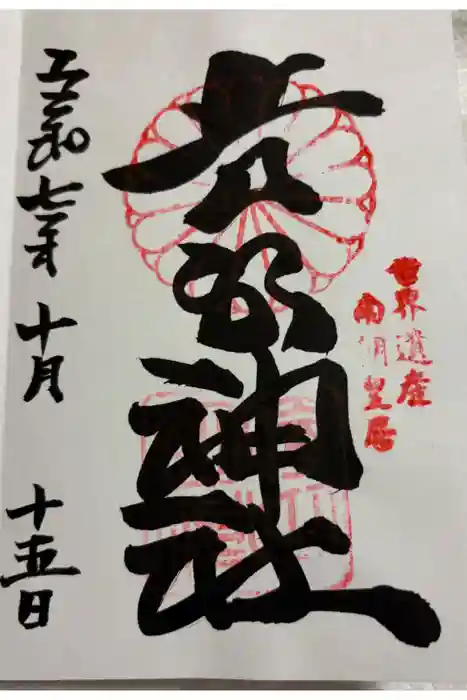 世界遺産
南朝皇居
吉水神社
令和七年 十月 十五日